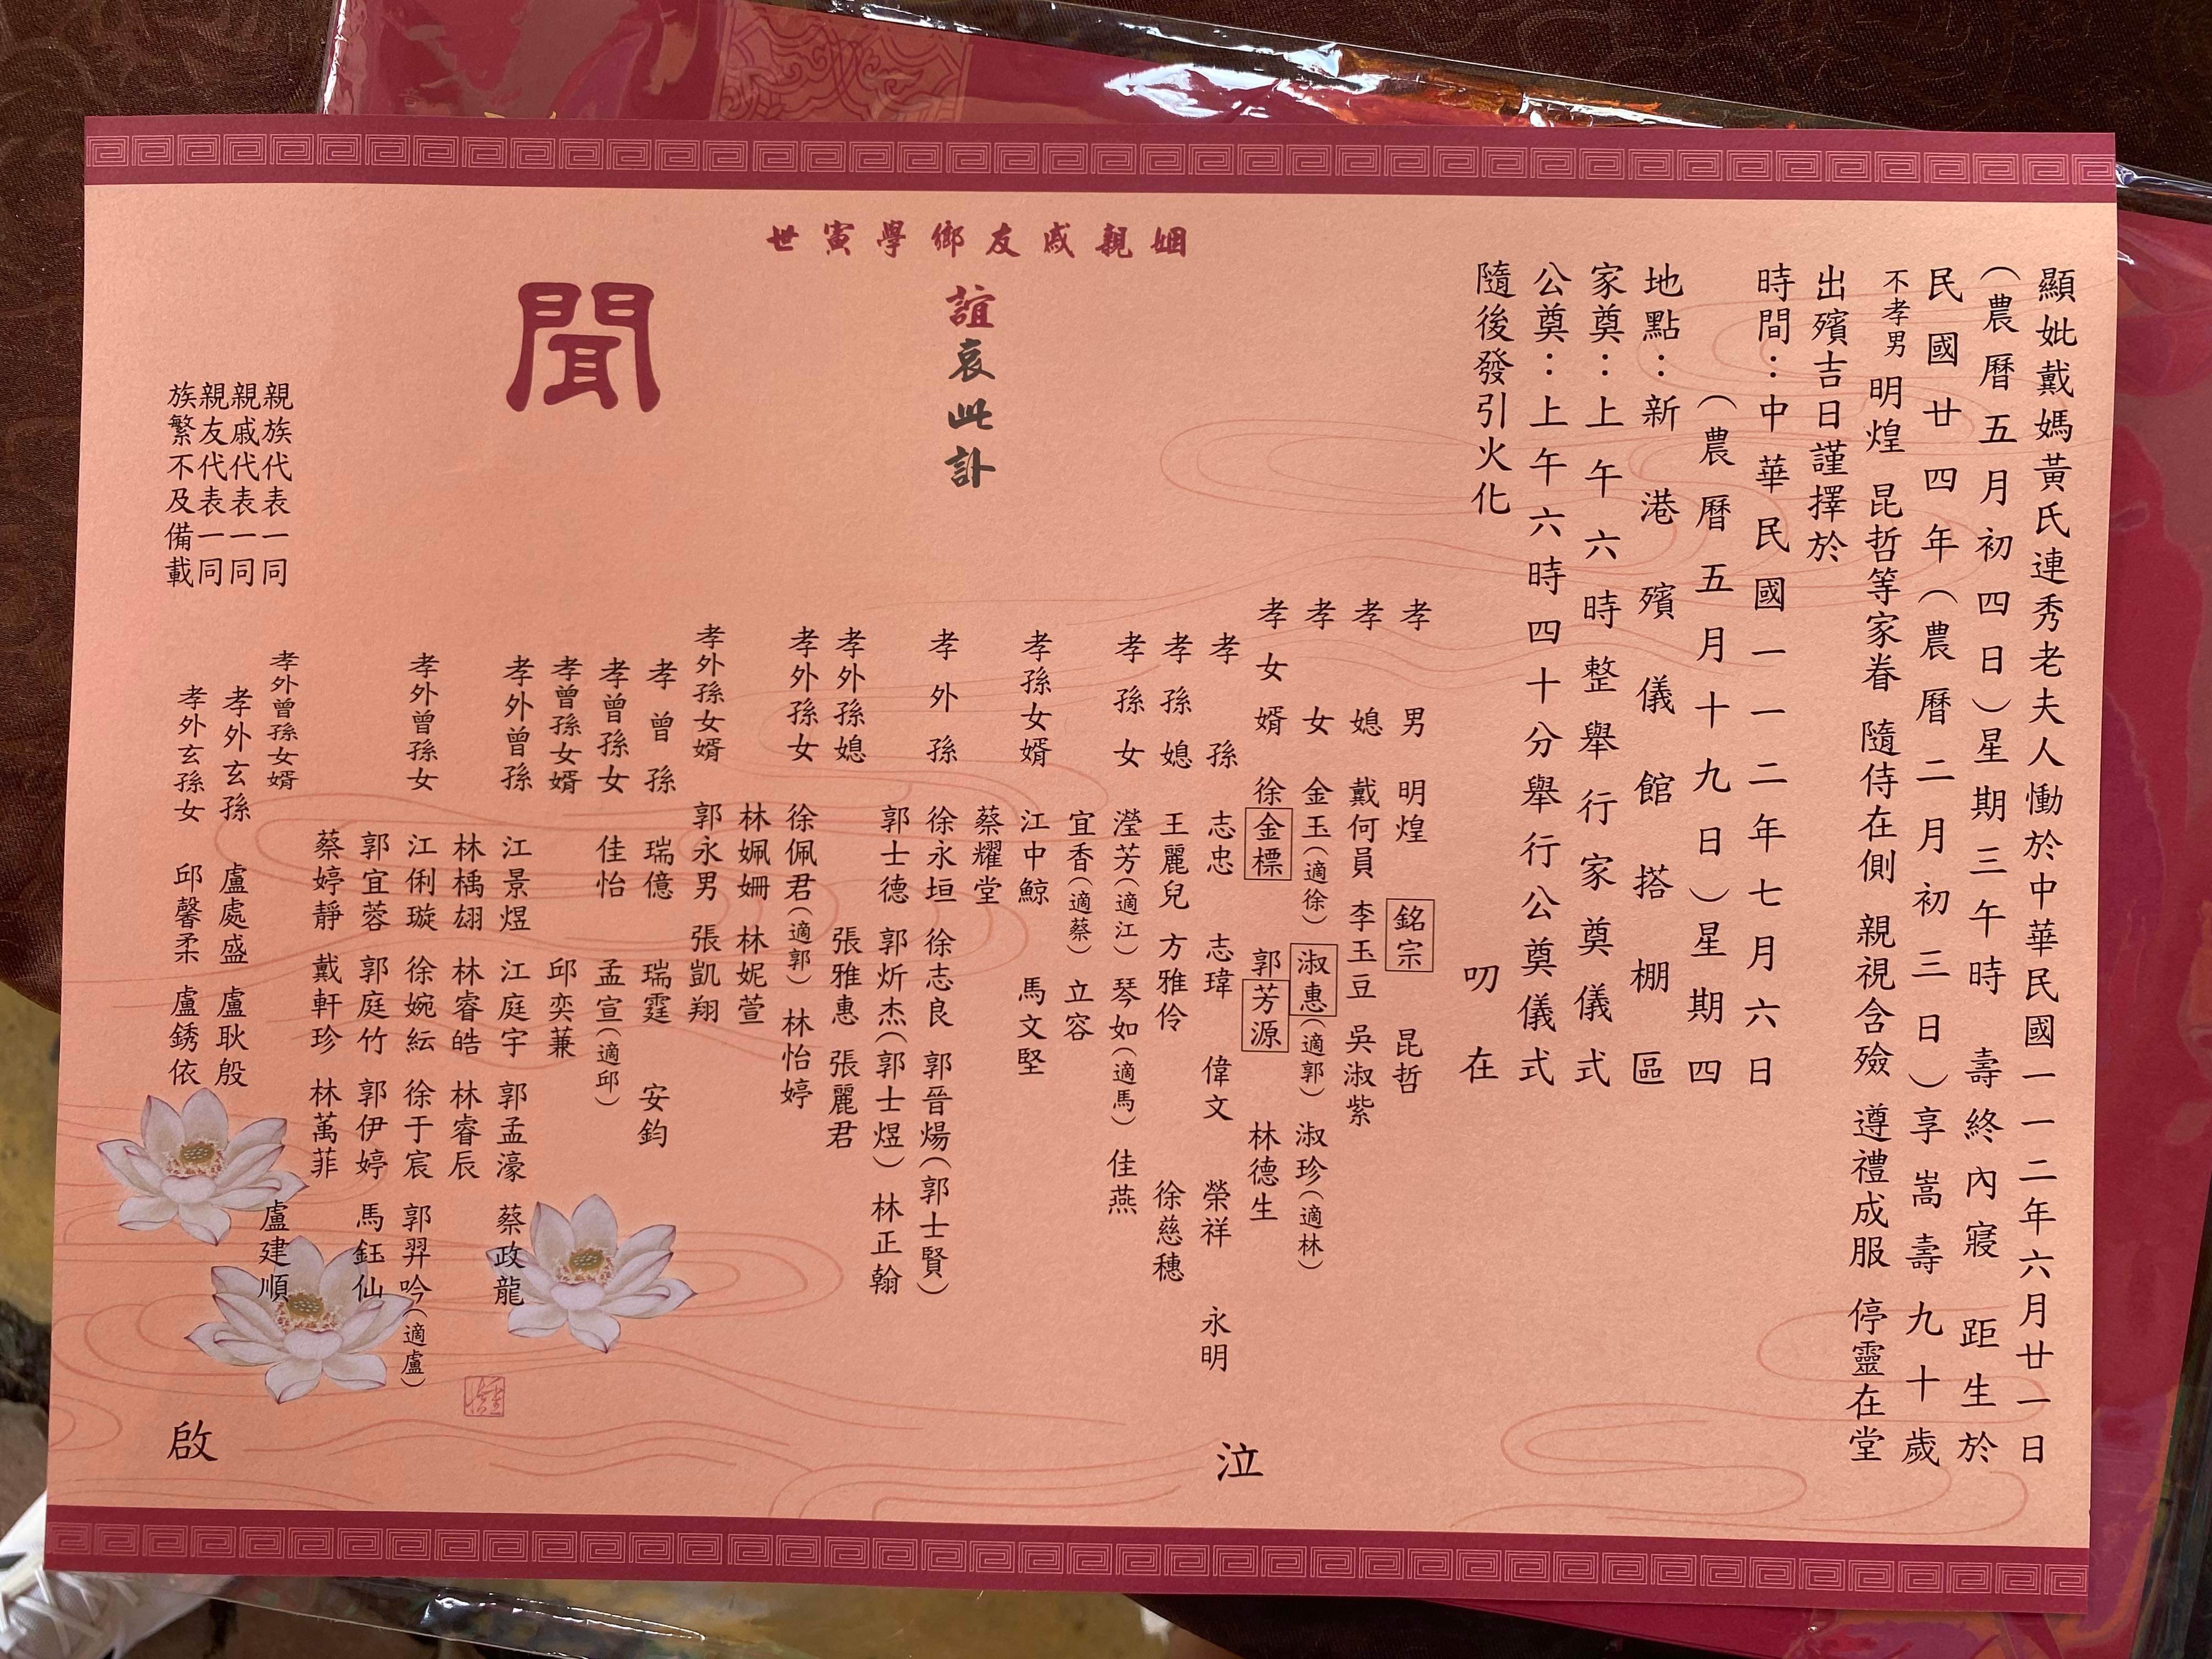 顯妣戴媽黃氏連秀老夫人慟於中華民國一一二年六月廿一日
（農曆五月初四日）星期三午時 壽終內寢 距生於
民國廿四年（農曆二月初三日）享嵩壽九十歲
不孝男 明煌 昆哲等家眷 隨侍在側 親視含殮 遵禮成服 停靈在堂
出殯吉日謹擇於
時間：中華民國一一二年七月六日
（農曆五月十九日）星期四
地點：新港殯儀館搭棚區
家奠：上午六時整舉行家奠儀式
公奠：上午六時四十分舉行公奠儀式
隨後發引火化
叨在
姻親戚友鄉學寅世
誼哀此訃
聞
孝男 明煌 銘宗 昆哲
孝媳 戴何員 李玉豆 吳淑紫
孝女 金玉（適徐） 淑惠（適郭） 淑珍（適林）
孝女婿 徐金標 郭芳源 林德生
孝孫 志忠 志瑋 偉文 榮祥 永明
孝孫媳 王麗兒 方雅伶 徐慈穗
孝孫女 瀅芳（適江） 琴如（適馬） 佳燕
宜香（適蔡） 立容
孝孫女婿 江中鯨 馬文堅
蔡耀堂
孝外孫 徐永垣 徐志良 郭晉煬（郭士賢）
郭士德 郭炘杰（郭士煜） 林正翰
孝外孫媳 張雅惠 張麗君
孝外孫女 徐佩君（適郭） 林怡婷
林姵姍 林妮萱
孝外孫女婿 郭永男 張凱翔
孝曾孫 瑞億 瑞霆 安鈞
孝曾孫女 佳怡 孟宣（適邱）
孝曾孫女婿 邱奕蒹
孝外曾孫 江景煜 江庭宇 郭孟濠 蔡政龍
林楀翃 林睿皓 林睿辰
孝外曾孫女 江俐璇 徐婉紜 徐于宸 郭羿吟（適盧）
郭宜蓉 郭庭竹 郭伊婷 馬鈺仙
蔡婷靜 戴軒珍 林萬菲
孝外曾孫女婿 盧建順
孝外玄孫 盧處盛 盧耿殷
孝外玄孫女 邱馨柔 盧銹依
泣
啟
親族代表一同
親戚代表一同
親友代表一同
族繁不及備載